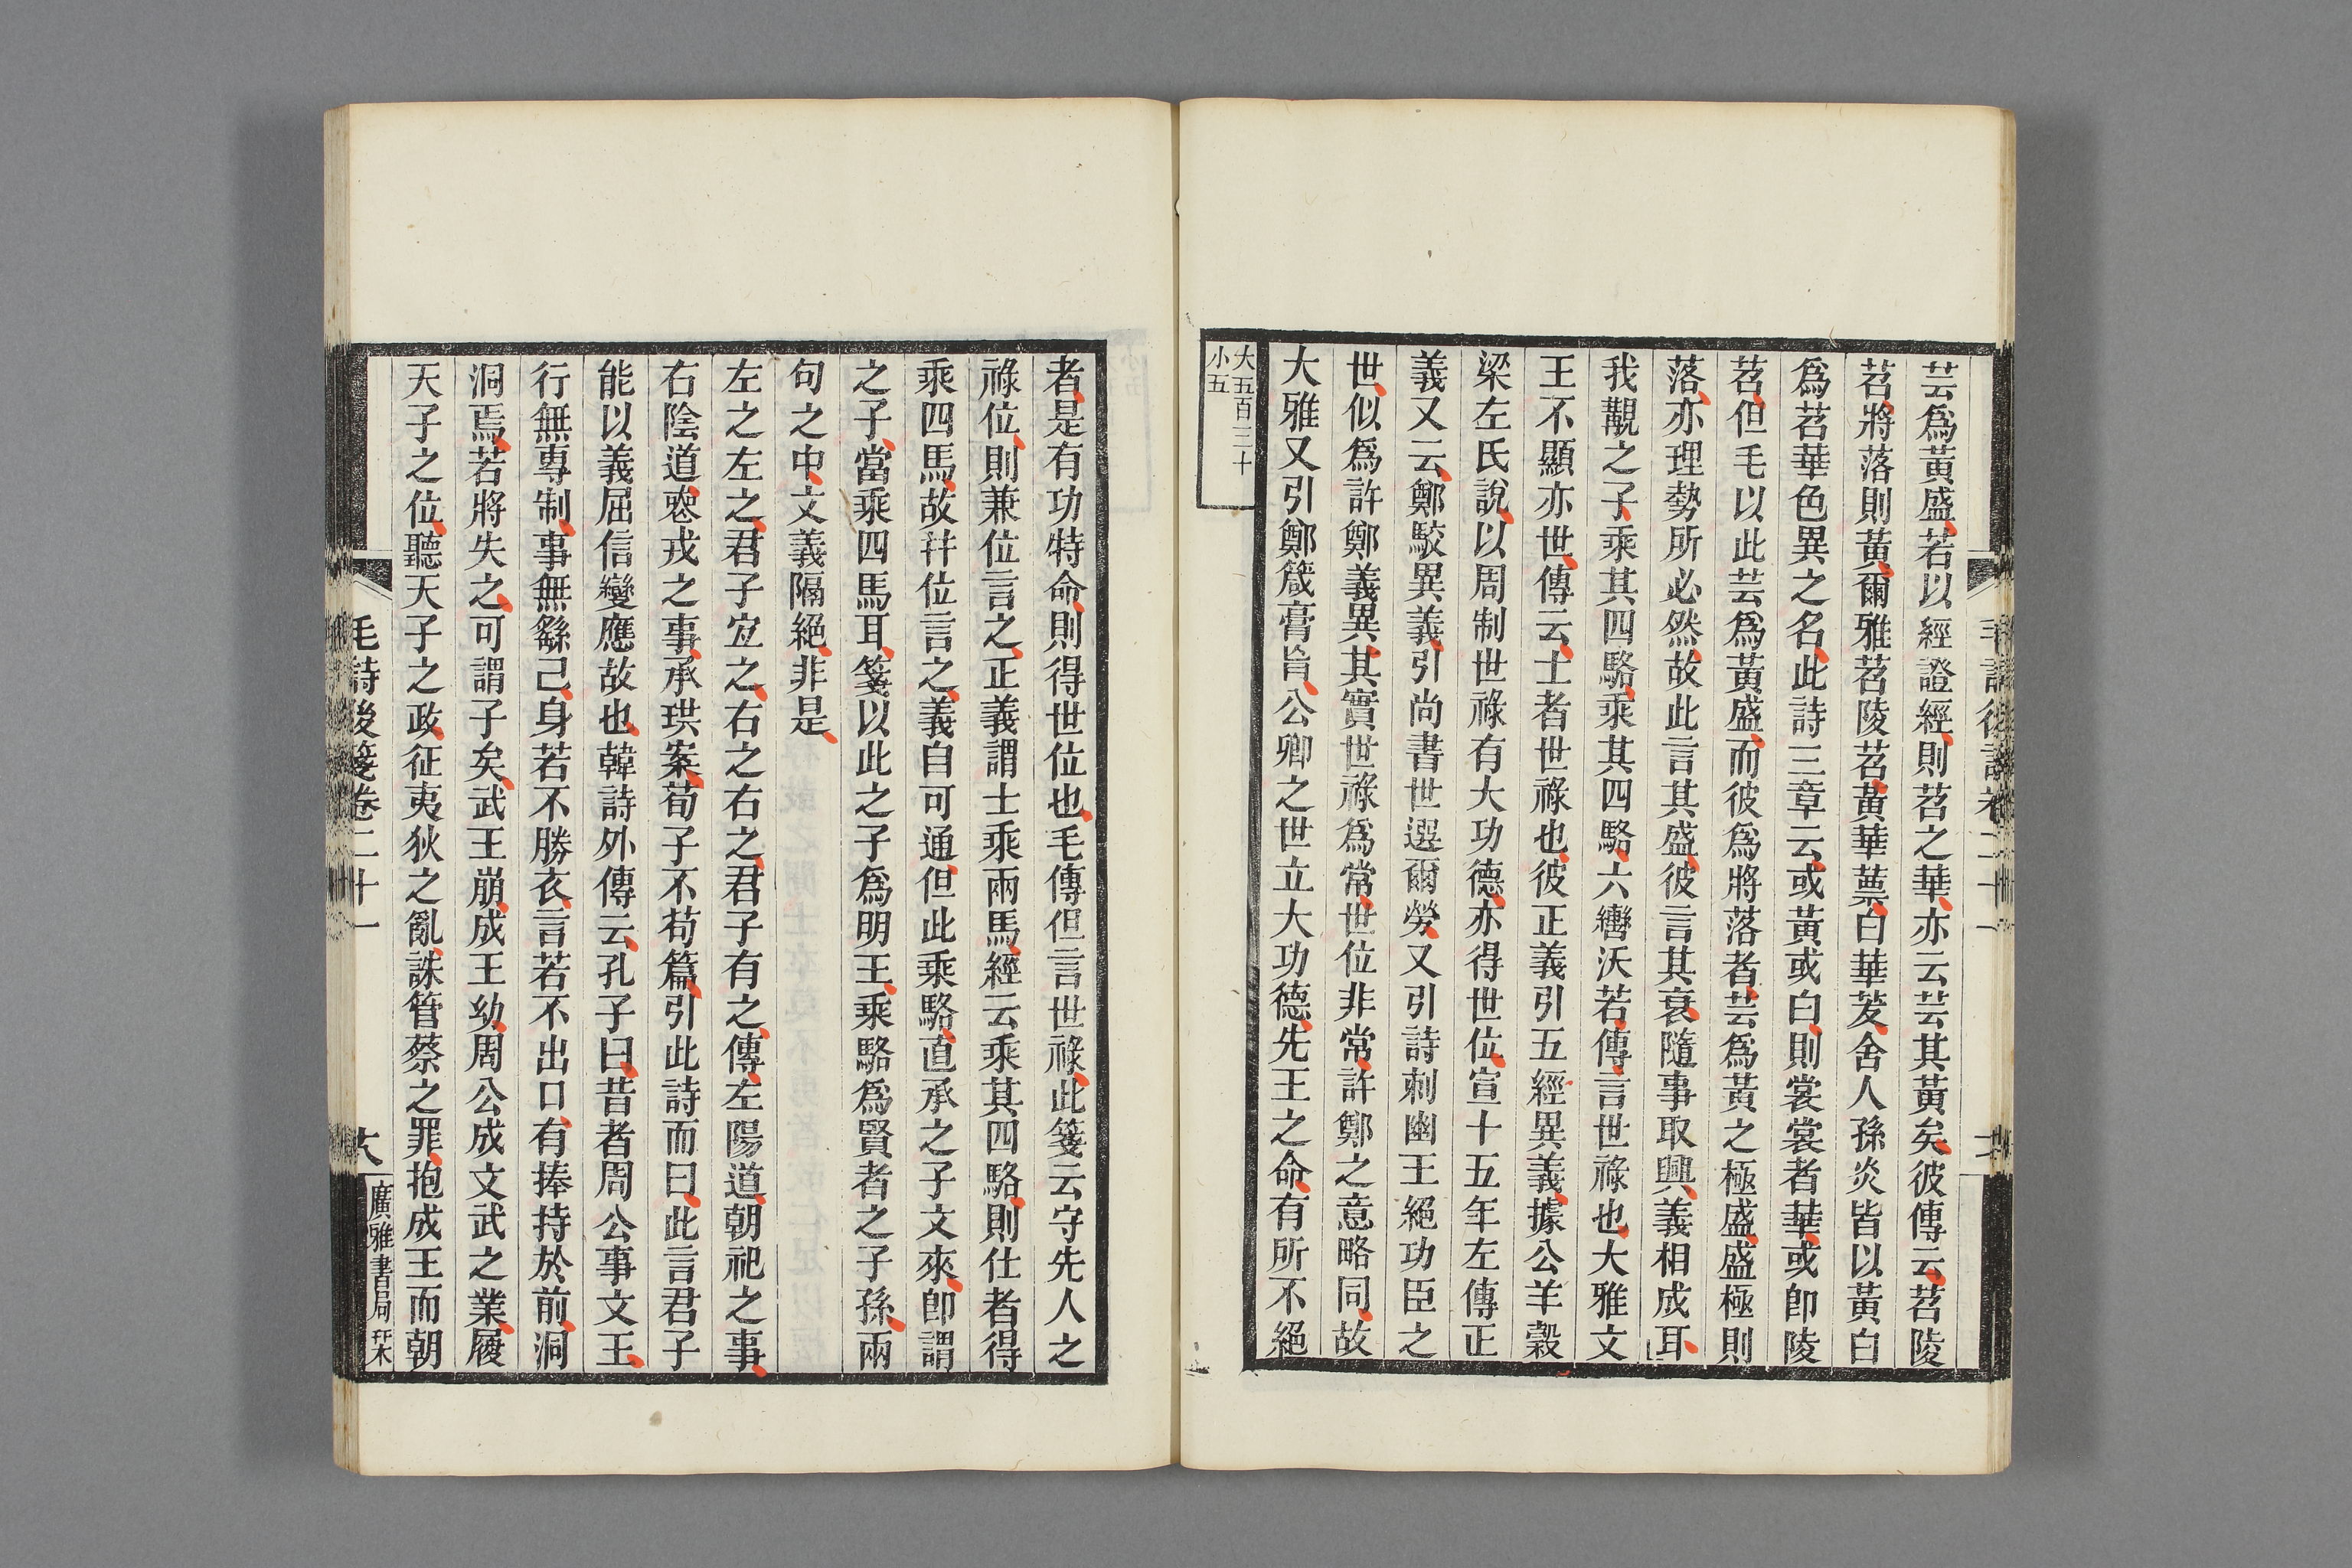 芸爲黃盛若以經證經則苕之華亦云芸其黃矣彼傳云苕陵
苕將落則黃爾雅苕陵苕黃華蔈白華茇舍人孫炎皆以黃白
爲苕華色異之名此詩三章云或黃或白則裳裳者華或卽陵
苕但毛以此芸爲黃盛而彼爲將落者芸爲黃之極盛盛極則
落亦理勢所必然故此言其盛彼言其衰隨事取興義相成耳
我覯之子乘其四駱乘其四駱六轡沃若傳言世祿也大雅文
王不顯亦世傳云士者世祿也彼正義引五經異義據公羊穀
梁左氏說以周制世祿有大功德亦得世位宣十五年左傳正
義又云鄭駮異義引尚書世選爾勞又引詩刺幽王絕功臣之
世似爲許鄭義異其實世祿爲常世位非常許鄭之意略同故
大雅又引鄭箴膏肓公卿之世立大功德先王之命有所不絕
大五百三十
小五
者是有功特命則得世位也毛傳但言世祿此箋云守先人之
祿位則兼位言之正義謂士乘兩馬經云乘其四駱則仕者得
乘四馬故幷位言之義自可通但此乘駱直承之子文來卽謂
之子當乘四馬耳箋以此之子爲明王乘駱爲賢者之子孫兩
句之中文義隔絕非是
左之左之君子宜之右之右之君子有之傳左陽道朝祀之事
右陰道喪戎之事承珙案荀子不苟篇引此詩而曰此言君子
能以義屈信變應故也韓詩外傳云孔子曰昔者周公事文王
行無專制事無繇己身若不勝衣言若不出口有捧持於前洞
洞焉若將失之可謂子矣武王崩成王幼周公成文武之業履
天子之位聽天子之政征夷狄之亂誅管蔡之罪抱成王而朝
毛詩後箋卷二十一
廣雅書局栞